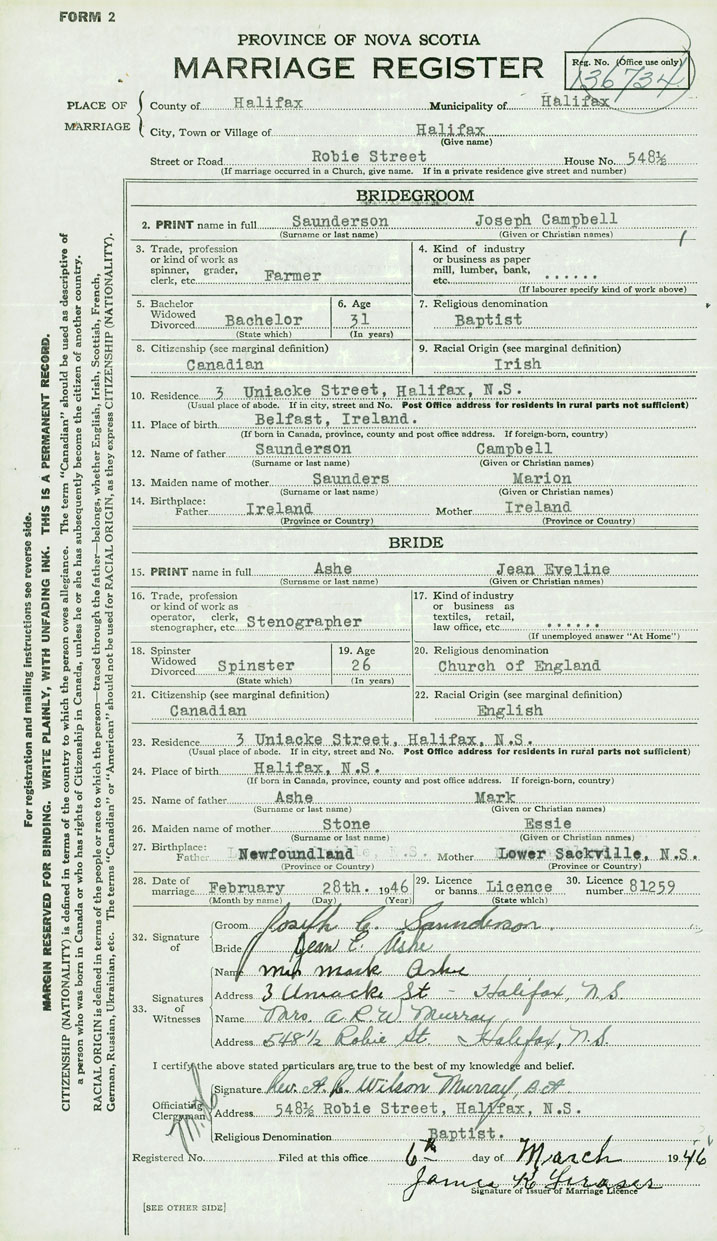 FORM 2
PROVINCE OF NOVA SCOTIA
MARRIAGE REGISTER
Reg. No. (Office use only)
136734
PLACE OF MARRIAGE
County of Halifax Municipality of Halifax
City, Town or Village of Halifax
(Give name)
Street or Road Robie Street House No. 548½
(If marriage occurred in a Church, give name. If in a private residence give street and number)
BRIDEGROOM
2. PRINT name in full Saunderson Joseph Campbell
(Surname or last name) (Given or Christian names)
3. Trade, profession
or kind of work as
spinner, grader,
clerk, etc. Farmer
4. Kind of industry
or business as paper
mill, lumber, bank,
etc. ......
(If labourer specify kind of work above)
5. Bachelor
Widowed
Divorced Bachelor
(State which)
6. Age
31
(In years)
7. Religious denomination
Baptist
8. Citizenship (see marginal definition)
Canadian
9. Racial Origin (see marginal definition)
Irish
10. Residence 3 Uniacke Street, Halifax, N.S.
(Usual place of abode. If in city, street and No. Post Office address for residents in rural parts not sufficient)
11. Place of birth Belfast, Ireland.
(If born in Canada, province, county and post office address. If foreign-born, country)
12. Name of father Saunderson Campbell
(Surname or last name) (Given or Christian names)
13. Maiden name of mother Saunders Marion
(Surname or last name) (Given or Christian names)
14. Birthplace:
Father Ireland Mother Ireland
(Province or Country) (Province or Country)
BRIDE
15. PRINT name in full Ashe Jean Eveline
(Surname or last name) (Given or Christian names)
16. Trade, profession
or kind of work as
operator, clerk,
stenographer, etc. Stenographer
17. Kind of industry
or business as
textiles, retail,
law office, etc. ......
(If unemployed answer "At Home")
18. Spinster
Widowed
Divorced Spinster
(State which)
19. Age
26
(In years)
20. Religious denomination
Church of England
21. Citizenship (see marginal definition)
Canadian
22. Racial Origin (see marginal definition)
English
23. Residence 3 Uniacke Street, Halifax, N.S.
(Usual place of abode. If in city, street and No. Post Office address for residents in rural parts not sufficient)
24. Place of birth Halifax, N.S.
(If born in Canada, province, county and post office address. If foreign-born, country)
25. Name of father Ashe Mark
(Surname or last name) (Given or Christian names)
26. Maiden name of mother Stone Essie
(Surname or last name) (Given or Christian names)
27. Birthplace:
Father Newfoundland Mother Lower Sackville, N.S.
(Province or Country) (Province or Country)
28. Date of
marriage February 28th. 1946
(Month by name) (Day) (Year)
29. Licence
or banns Licence
(State which)
30. Licence
number 81259
32. Signature of
Groom Joseph C. Saunderson
Bride Jean E. Ashe
33. Signatures of Witnesses
Name Mrs Mark Ashe
Address 3 Uniacke St - Halifax, N.S.
Name Mrs. A.R.W. Murray
Address 548 1/2 Robie St. Halifax, N.S.
I certify the above stated particulars are true to the best of my knowledge and belief.
Officiating Clergyman
Signature Rev. A. R. Wilson Murray, B.A.
Address 548½ Robie Street, Halifax, N.S.
Religious Denomination Baptist.
Registered No. Filed at this office 6th day of March 1946
James K Fraser
Signature of Issuer of Marriage Licence
[SEE OTHER SIDE]
For registration and mailing instructions see reverse side.
MARGIN RESERVED FOR BINDING. WRITE PLAINLY, WITH UNFADING INK. THIS IS A PERMANENT RECORD.
CITIZENSHIP (NATIONALITY) is defined in terms of the country to which the person owes allegiance. The term "Canadian" should be used as descriptive of
a person who was born in Canada or who has rights of Citizenship in Canada, unless he or she has subsequently become the citizen of another country.
RACIAL ORIGIN is defined in terms of the people or race to which the person—traced through the father—belongs, whether English, Irish, Scottish, French,
German, Russian, Ukrainian, etc. The terms "Canadian" or "American" should not be used for RACIAL ORIGIN, as they express CITIZENSHIP (NATIONALITY).